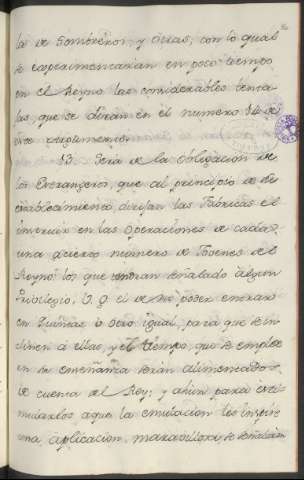 la de Sombreros, y otras, con lo qual
se experimentaran en poco tiempo
en el Reyno las considerables venta
jas, que se diran en el numero 54 de
este
53. Será de la obligacion de
los Estrangeros, que al principio de su
establecimiento dirijan las Fabricas el
instruir en las Operaciones de cada
una cierto numero de Jovenes del
Reyno los que tendran señalado algun
Privilegio, V. g. el de no poder entrar
en Quintas, ù otro igual, para que se in
clinen à ellas, y el tiempo, que se emplee
en su enseñanza seran alimentados
de cuenta del Rey; y ahun para esti
mularlos a que la emulacion les inspire
una aplicacion, maravillosa, se señalaran